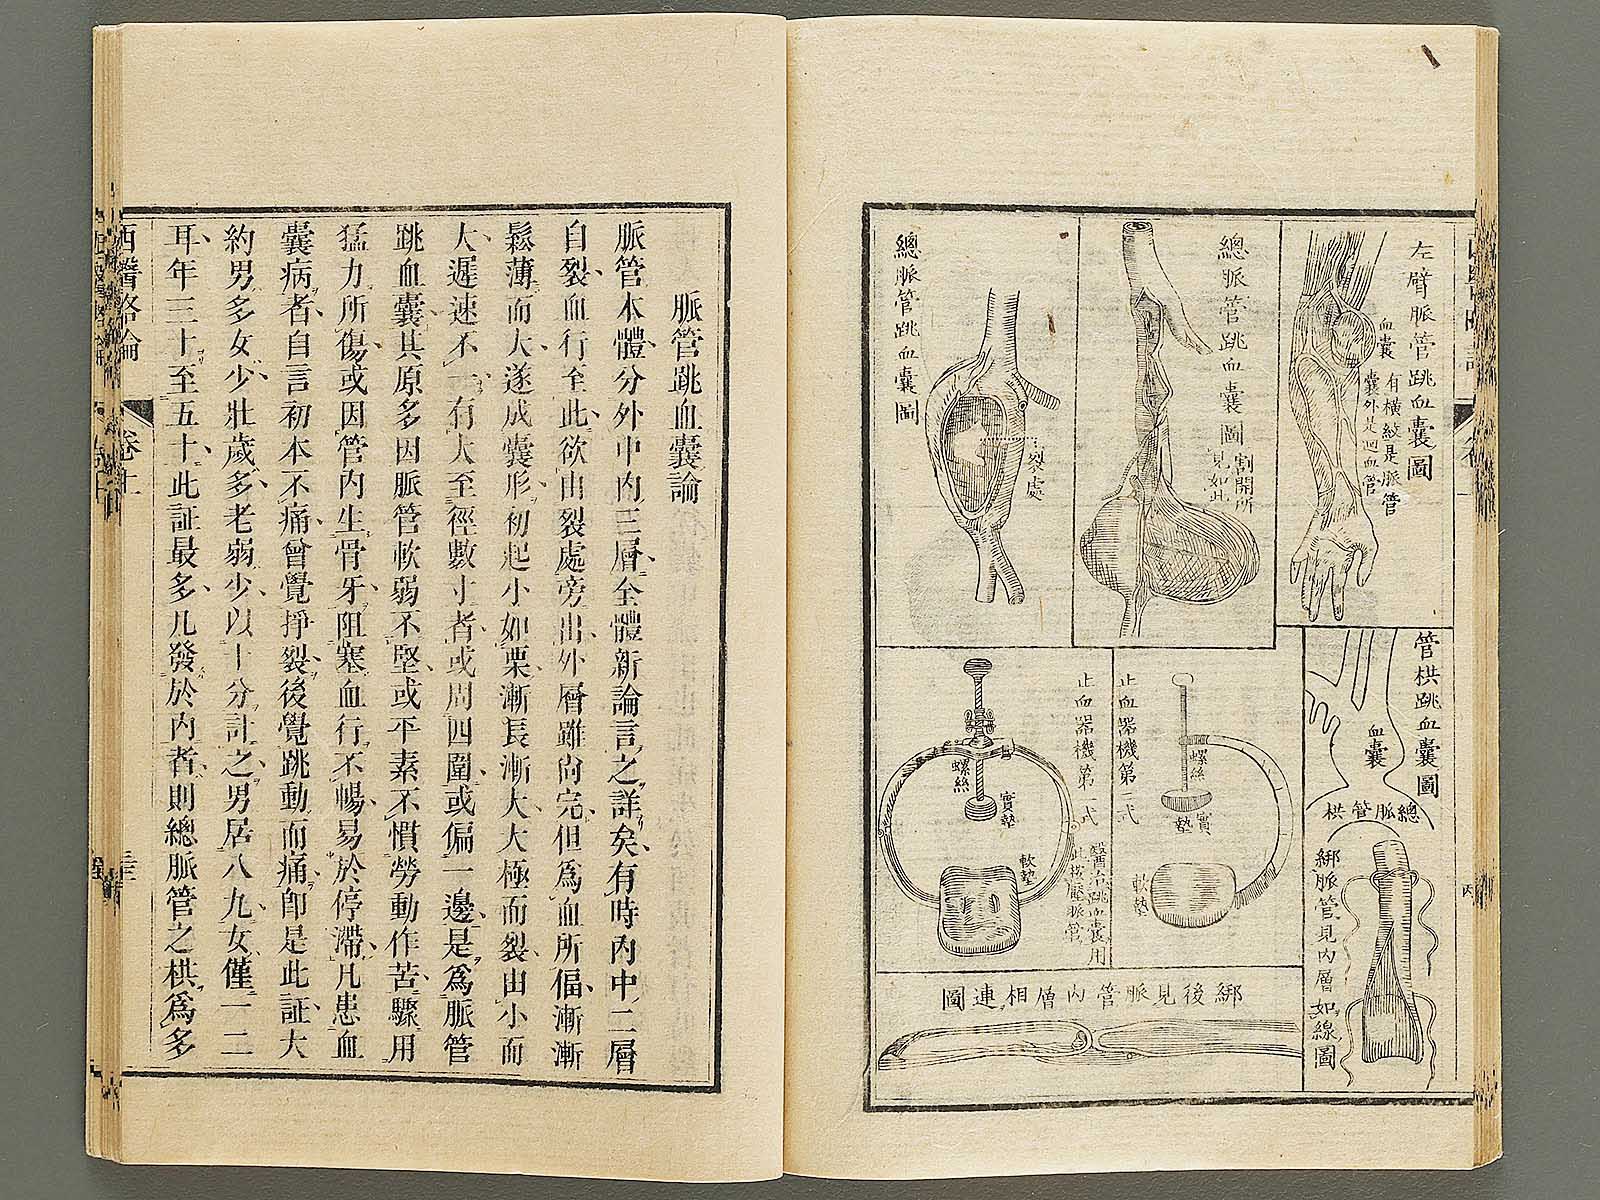 左臂脈管跳血囊圖
血囊
有橫紋是脈管
囊外是迴血管
總脈管跳血囊圖
割開所
見如此
總脈管跳血囊圖
裂處
管栱跳血囊圖
血囊
總脈管栱
綁脈管見內層如線圖
止血器機第二式
螺絲
實墊
軟墊
止血器機第一式
醫治跳血囊用
此按壓脈管
螺絲
實墊
軟墊
綁後見脈管內層相連圖
脈管跳血囊論
脈管本體分外中內三層全體新論言之詳矣有時內中二層
自裂血行至此欲由裂處旁出外層雖尚完但為血所偪漸漸
鬆薄而大遂成囊形初起小如栗漸長漸大大極而裂由小而
大遲速不一有大至徑數寸者或周四圍或偏一邊是為脈管
跳血囊其原多因脈管軟弱不堅或平素不慣勞動作苦驟用
猛力所傷或因管內生骨牙阻塞血行不暢易於停滯凡患血
囊病者自言初本不痛曾覺掙裂後覺跳動而痛即是此証大
約男多女少壯歲多老弱少以十分計之男居八九女僅一二
耳年三十至五十此証最多凡發於內者則總脈管之栱為多
西醫略論